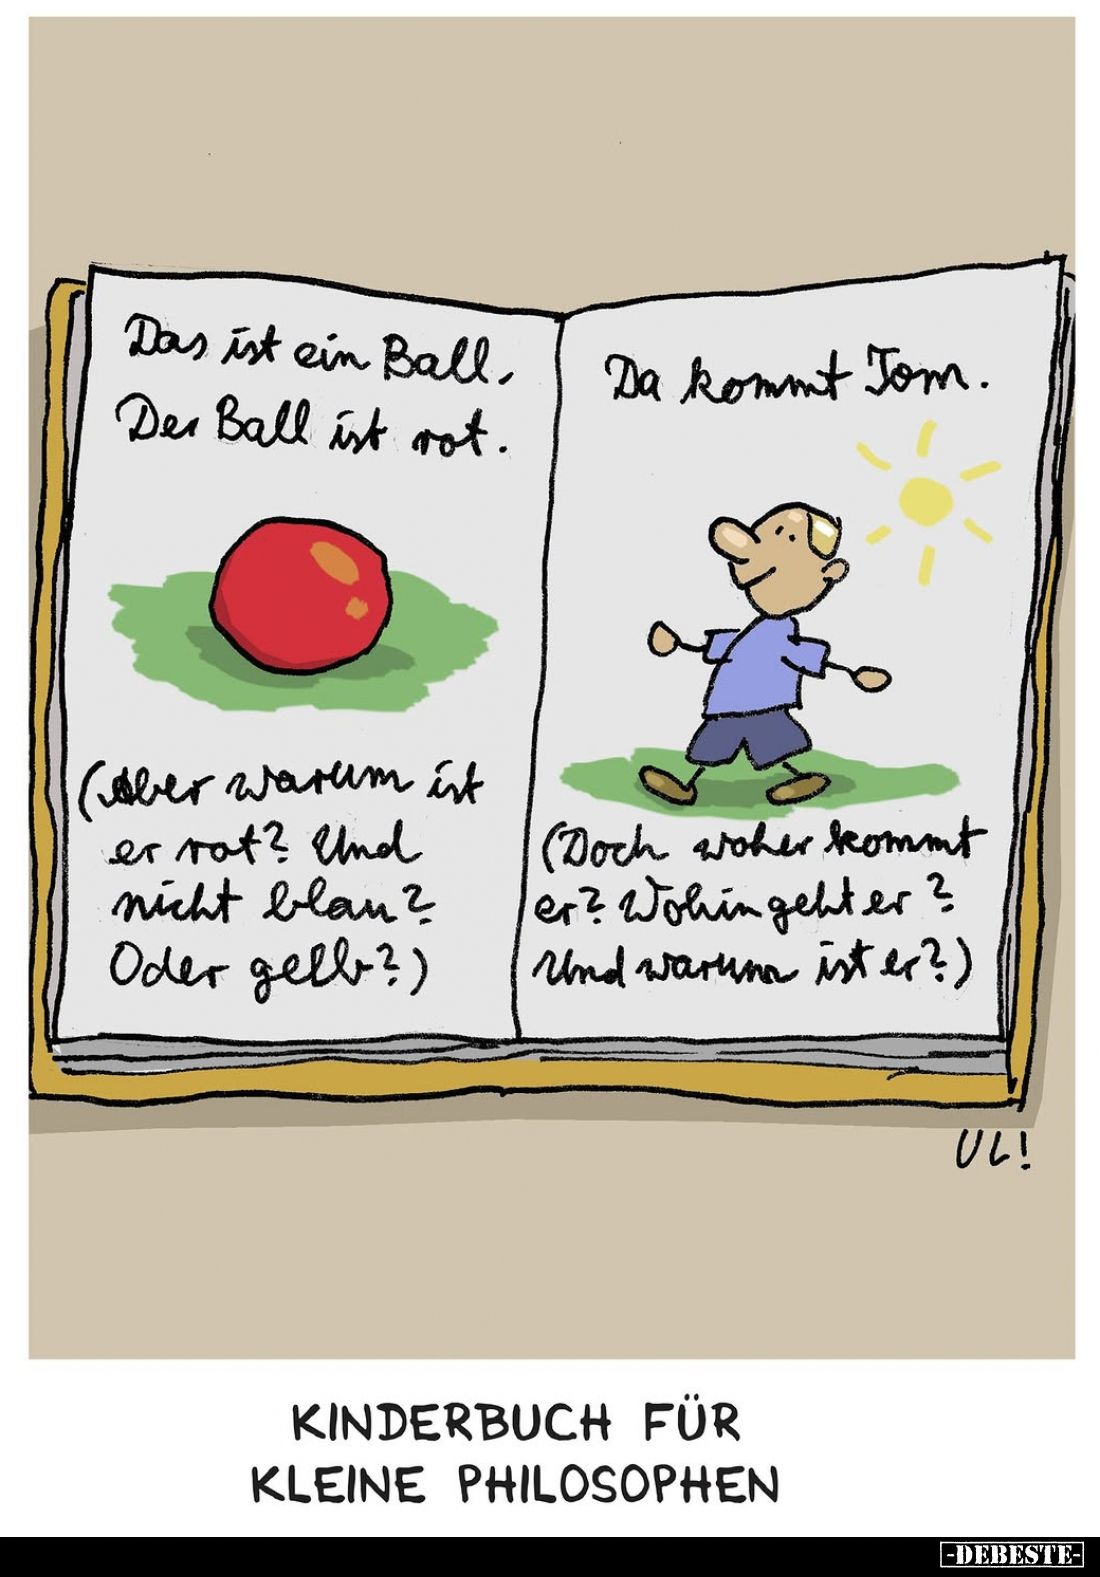 Das ist ein Ball.
Der Ball ist rot.
(Aber warum ist
er rot? Und
nicht blau?
Oder gelb?)
Da kommt Tom.
(Doch woher kommt
er? Wohin geht er?
Und warum ist er?)
UL!
KINDERBUCH FÜR
KLEINE PHILOSOPHEN
-DEBESTE-